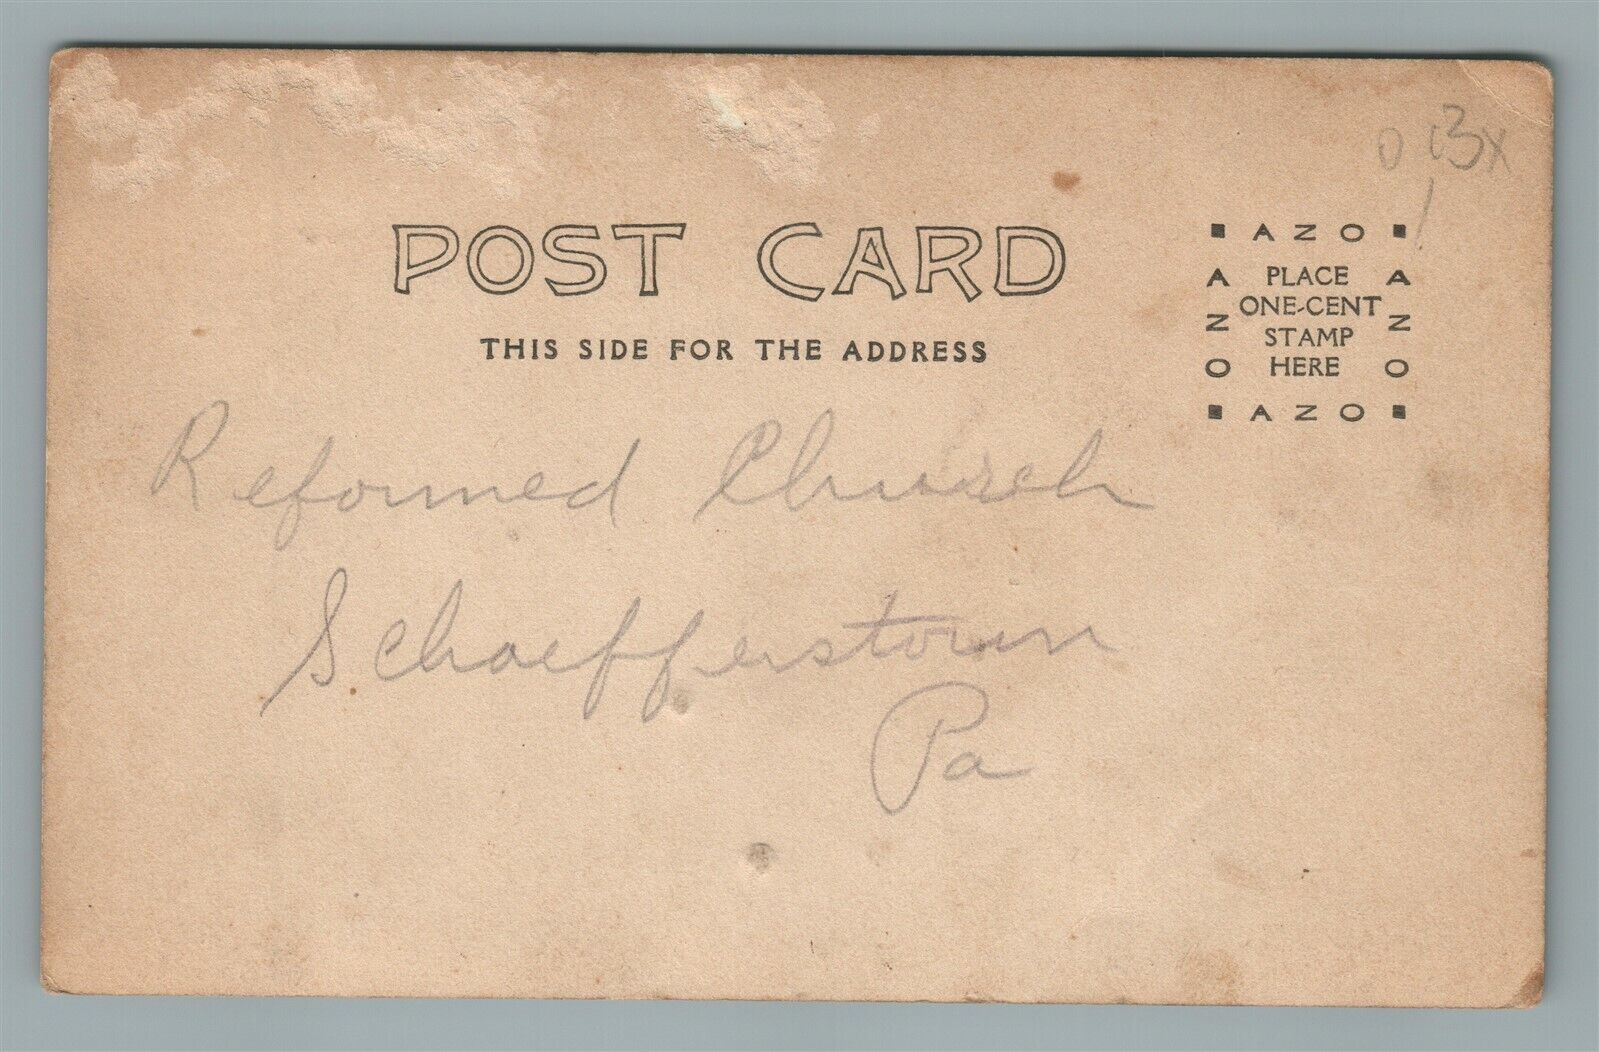 POST CARD
THIS SIDE FOR THE ADDRESS
AZO
AZO
PLACE
ONE-CENT
STAMP
HERE
AZO
AZO
Reformed Church
Schaefferstown
Pa